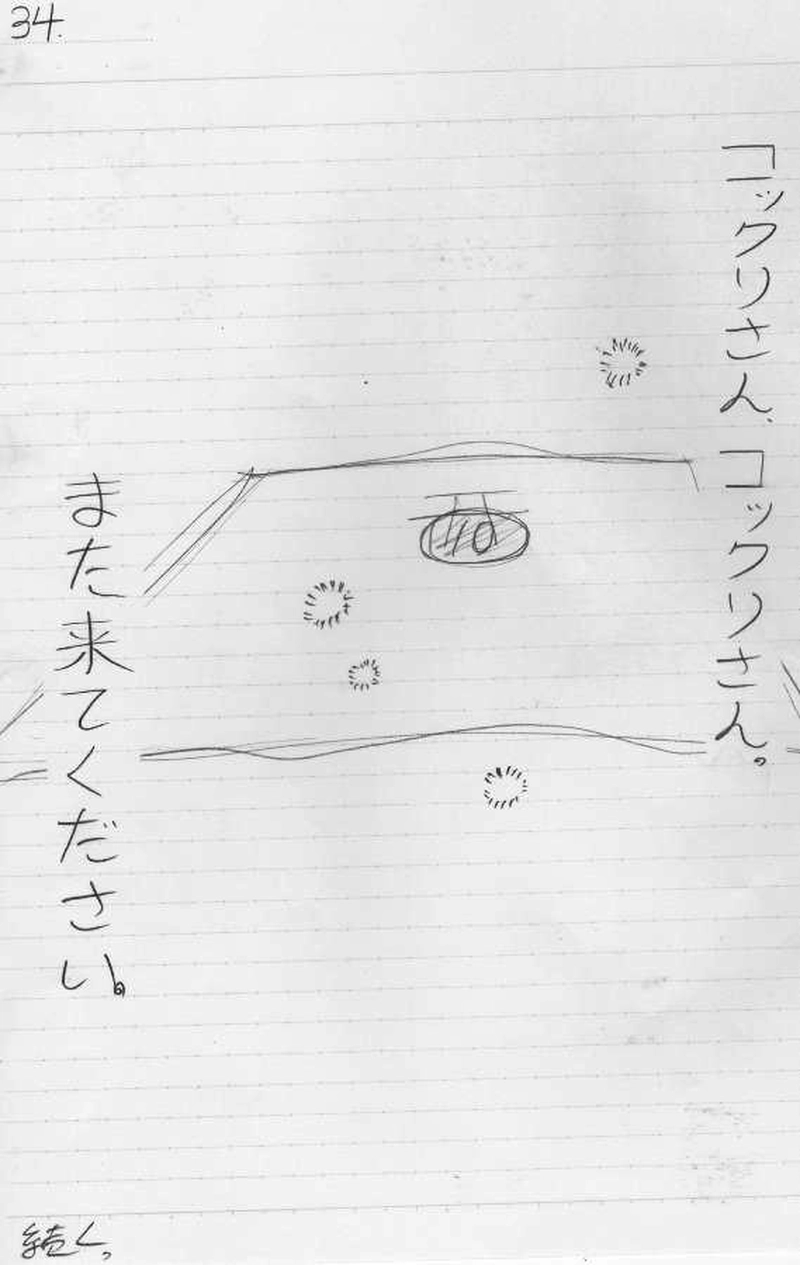 34.
コックリさん、コックリさん。
また来てください。
10
続く。